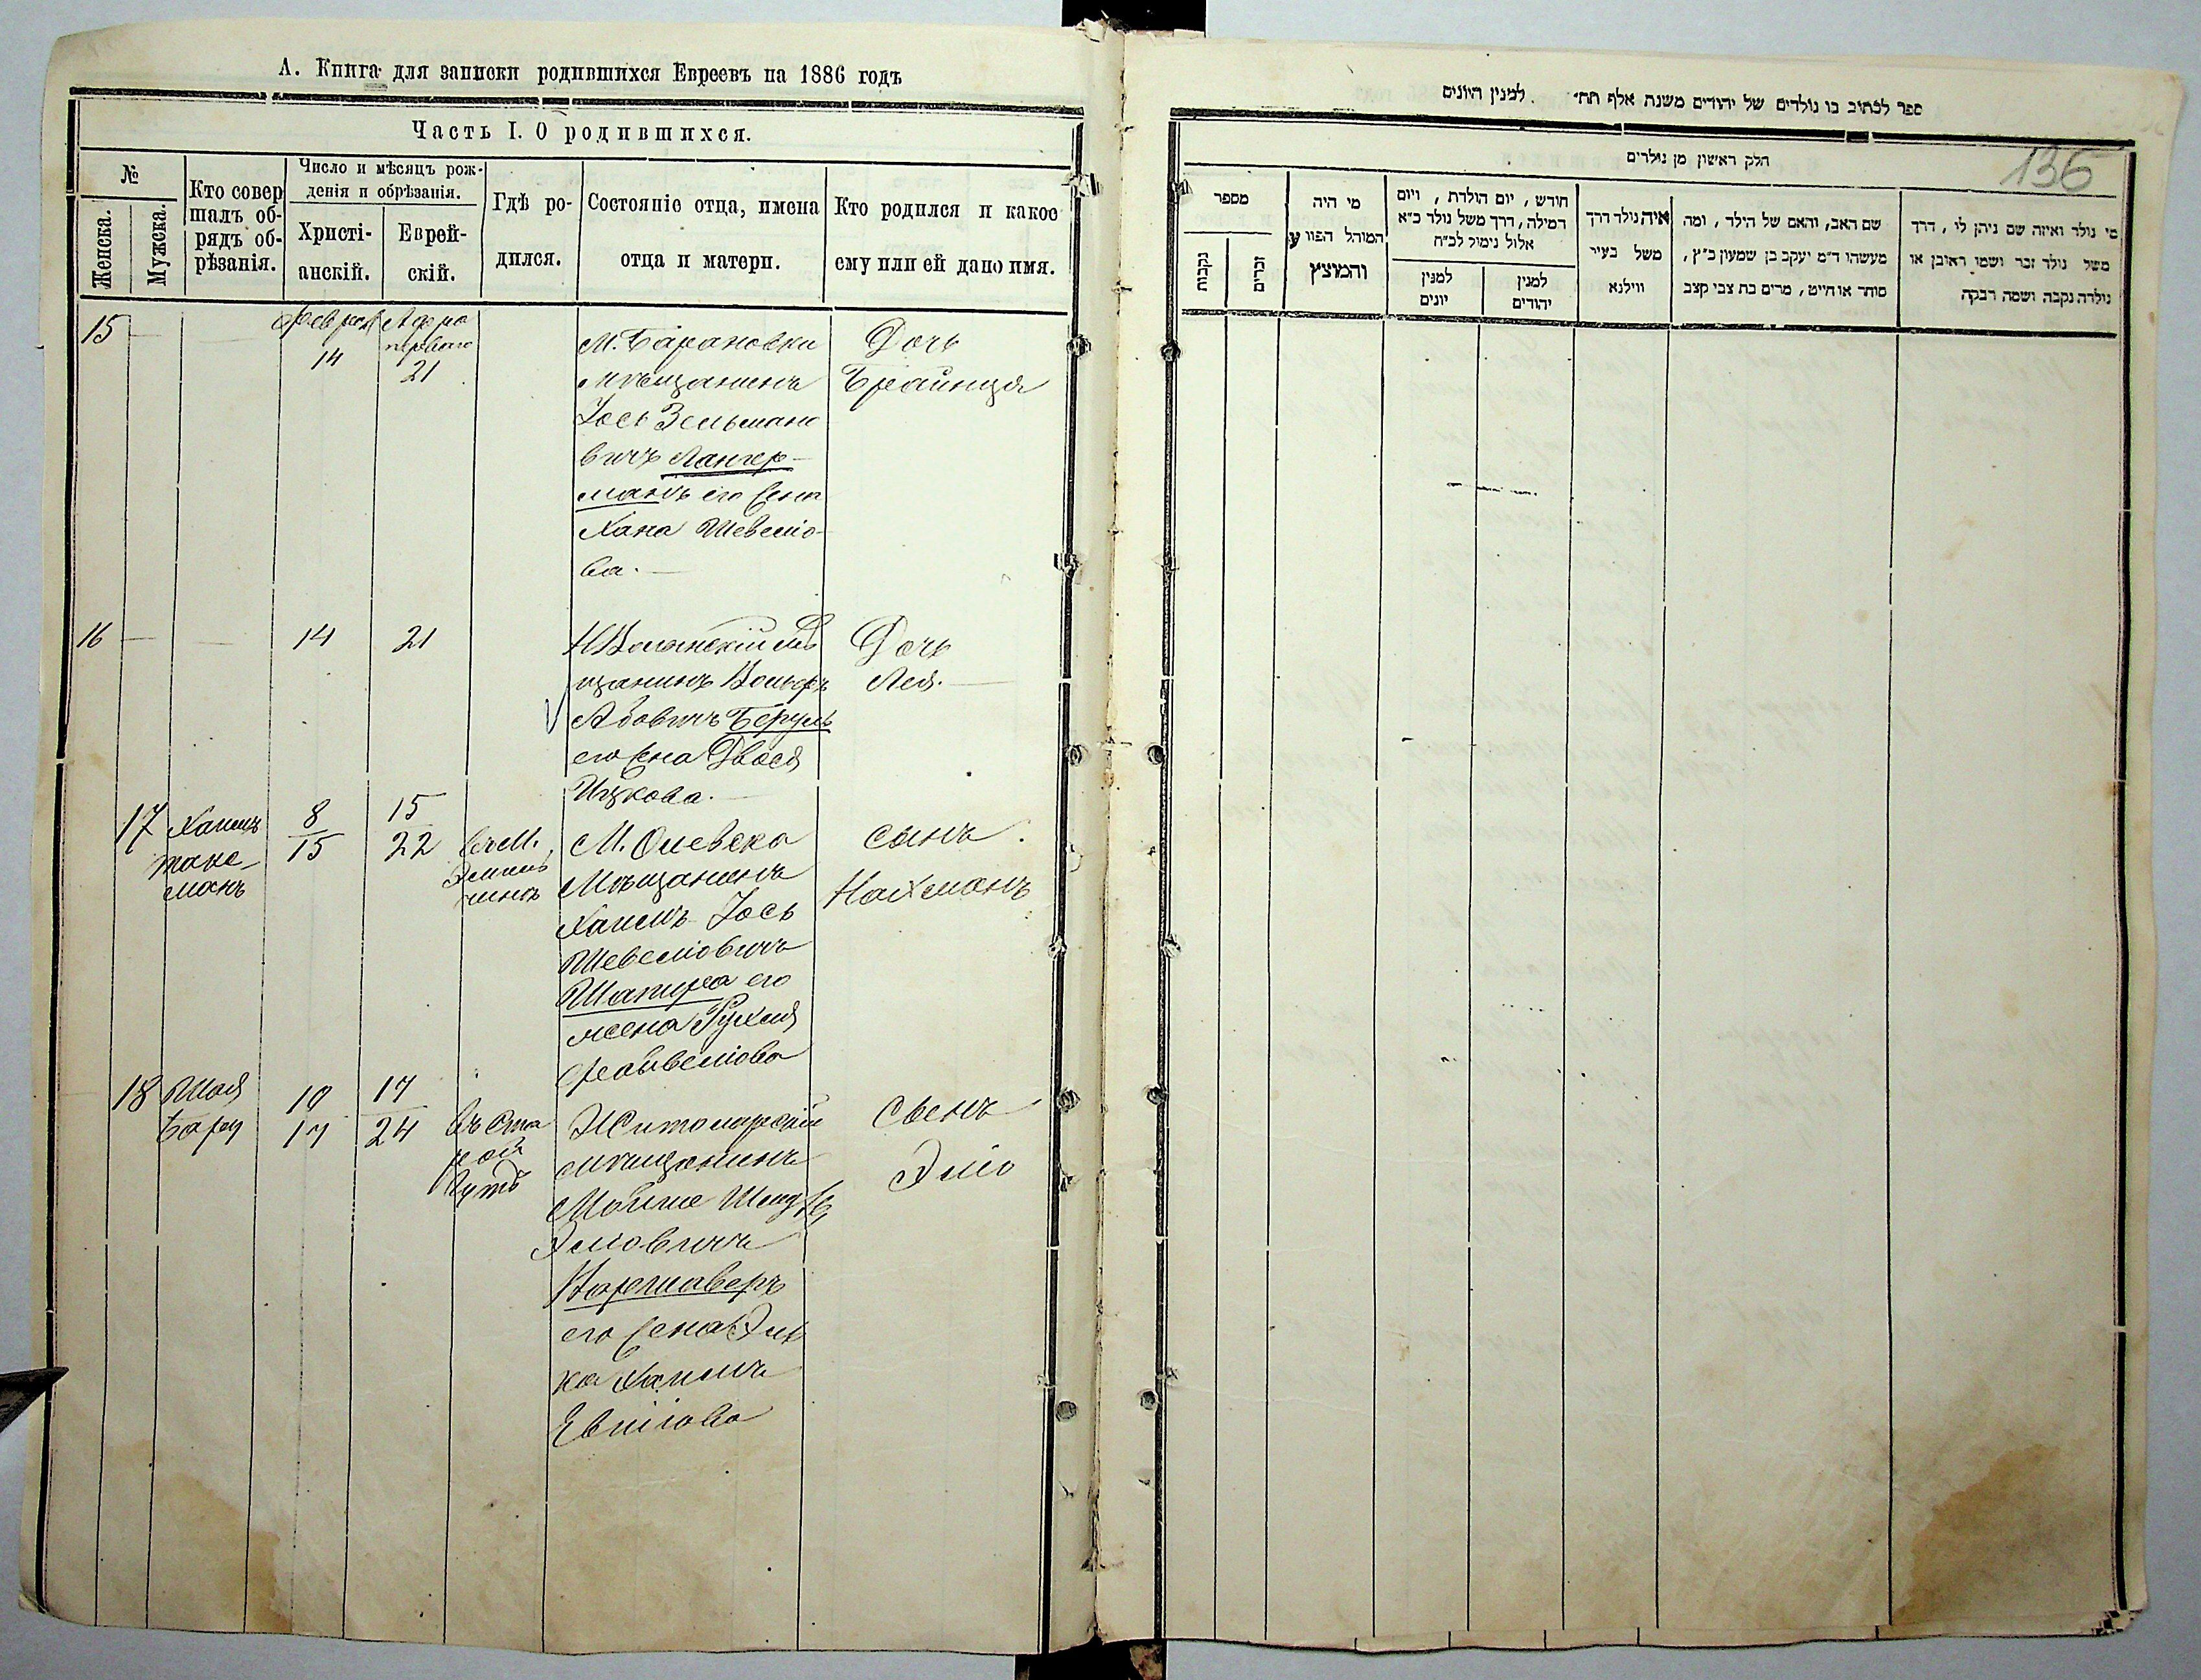 А. Книга для записки родившихся Евреевъ на 1886 годъ
Часть I. О родившихся.
№
Женска.
Мужска.
Кто совер
шалъ об-
рядъ об-
рѣзанія.
Число и мѣсяцъ рож-
денія и обрѣзанія.
Христі-
анскій.
Еврей-
скій.
Гдѣ ро-
дился.
Состояніе отца, имена
отца и матери.
Кто родился и какое
ему или ей дано имя.
15
Февраля
14
Адара
перваго
21
М. Барановки
мѣщанинъ
Іось Зельмано
вичъ Лангер-
манъ его жена
Хана Шевелiо-
ва.
Дочь
Брайнця
16
14
21
щанинъ Вольфъ
Абовичъ Беруль
его жена Двося
Ицкова.
Дочь
Лея.
17
Хаимъ
такс
манъ
8
15
15
22
въ М.
Эмиль
чинѣ
М. Олевска
Мѣщанинъ
Хаимъ Іось
Шевелiовичъ
Шапира его
жена Рухля
Файвелiова
сынъ
Нахманъ
18
Шая
Барах
10
17
17
24
въ Ста
рой
Гутѣ
Житомирскій
мѣщанинъ
Мойше
Элiовичъ
его жена Эль
ка Хаимъ
сынъ
Элiо
ספר לכתוב בו נולדים של יהודים משנת אלף תת״ למנין היונים
136
חלק ראשון מן נולדים
מספר
נקבות
זכרים
מי היה
המוהל הפורע
והמוצץ
חודש, יום הולדת, ויום
המילה, דרך משל נולד כ״א
אלול נימול לכ״ח
למנין
יונים
למנין
יהודים
איה נולד דרך
משל בעיר
ווילנא
שם האב, והאם של הילד, ומה
מעשהו ד״מ יעקב בן שמעון כ״ץ,
סוחר או חייט, מרים בת צבי קצב
מי נולד ואיזה שם ניתן לו, דרך
משל נולד זכר ושמו ראובן או
נולדה נקבה ושמה רבקה